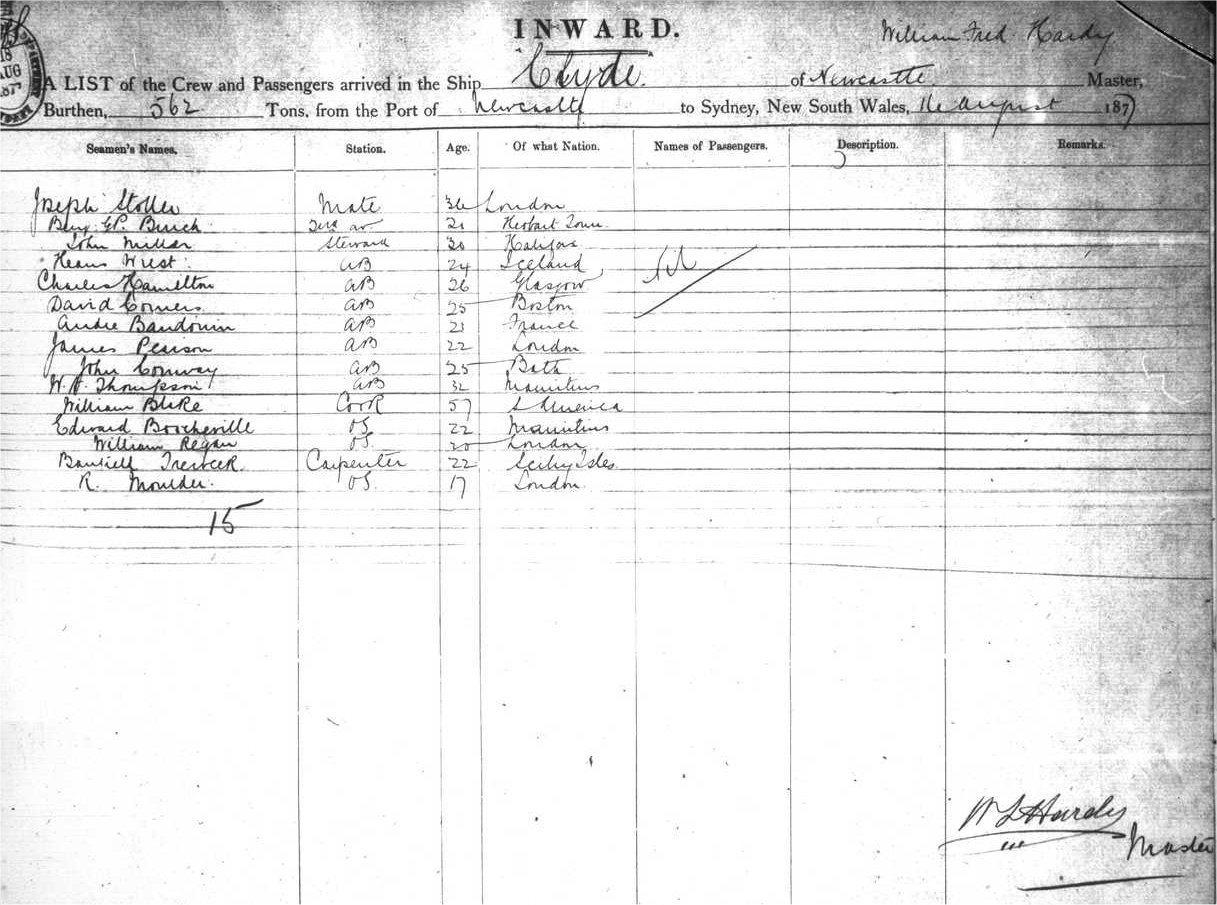 18
AUG
187
INWARD.
William Fred. Hardy
A LIST of the Crew and Passengers arrived in the Ship Clyde. of Newcastle Master,
Burthen, 562 Tons, from the Port of Newcastle to Sydney, New South Wales, 16 August 1877
Seamen's Names. Station. Age. Of what Nation. Names of Passengers. Description. Remarks.
Joseph Mate 36 London
Birch 21 Hobart Town
John Millar Steward 30 Halifax
West AB 24 Iceland Nil
Charles Hamilton AB 26 Glasgow
David Comers AB 25 Boston
Andre Baudouin AB 21 France
James Pearson AB 22 London
John Conway AB 25 Bath
W. Thompson AB 32 Mauritius
William Blake Cook 57 S America
Edward Boucheville OS 22 Mauritius
William Regan OS. 20 London
Carpenter 22 Scilly Isles
R. Moulder. OS. 17 London.
15
Hardy
Master